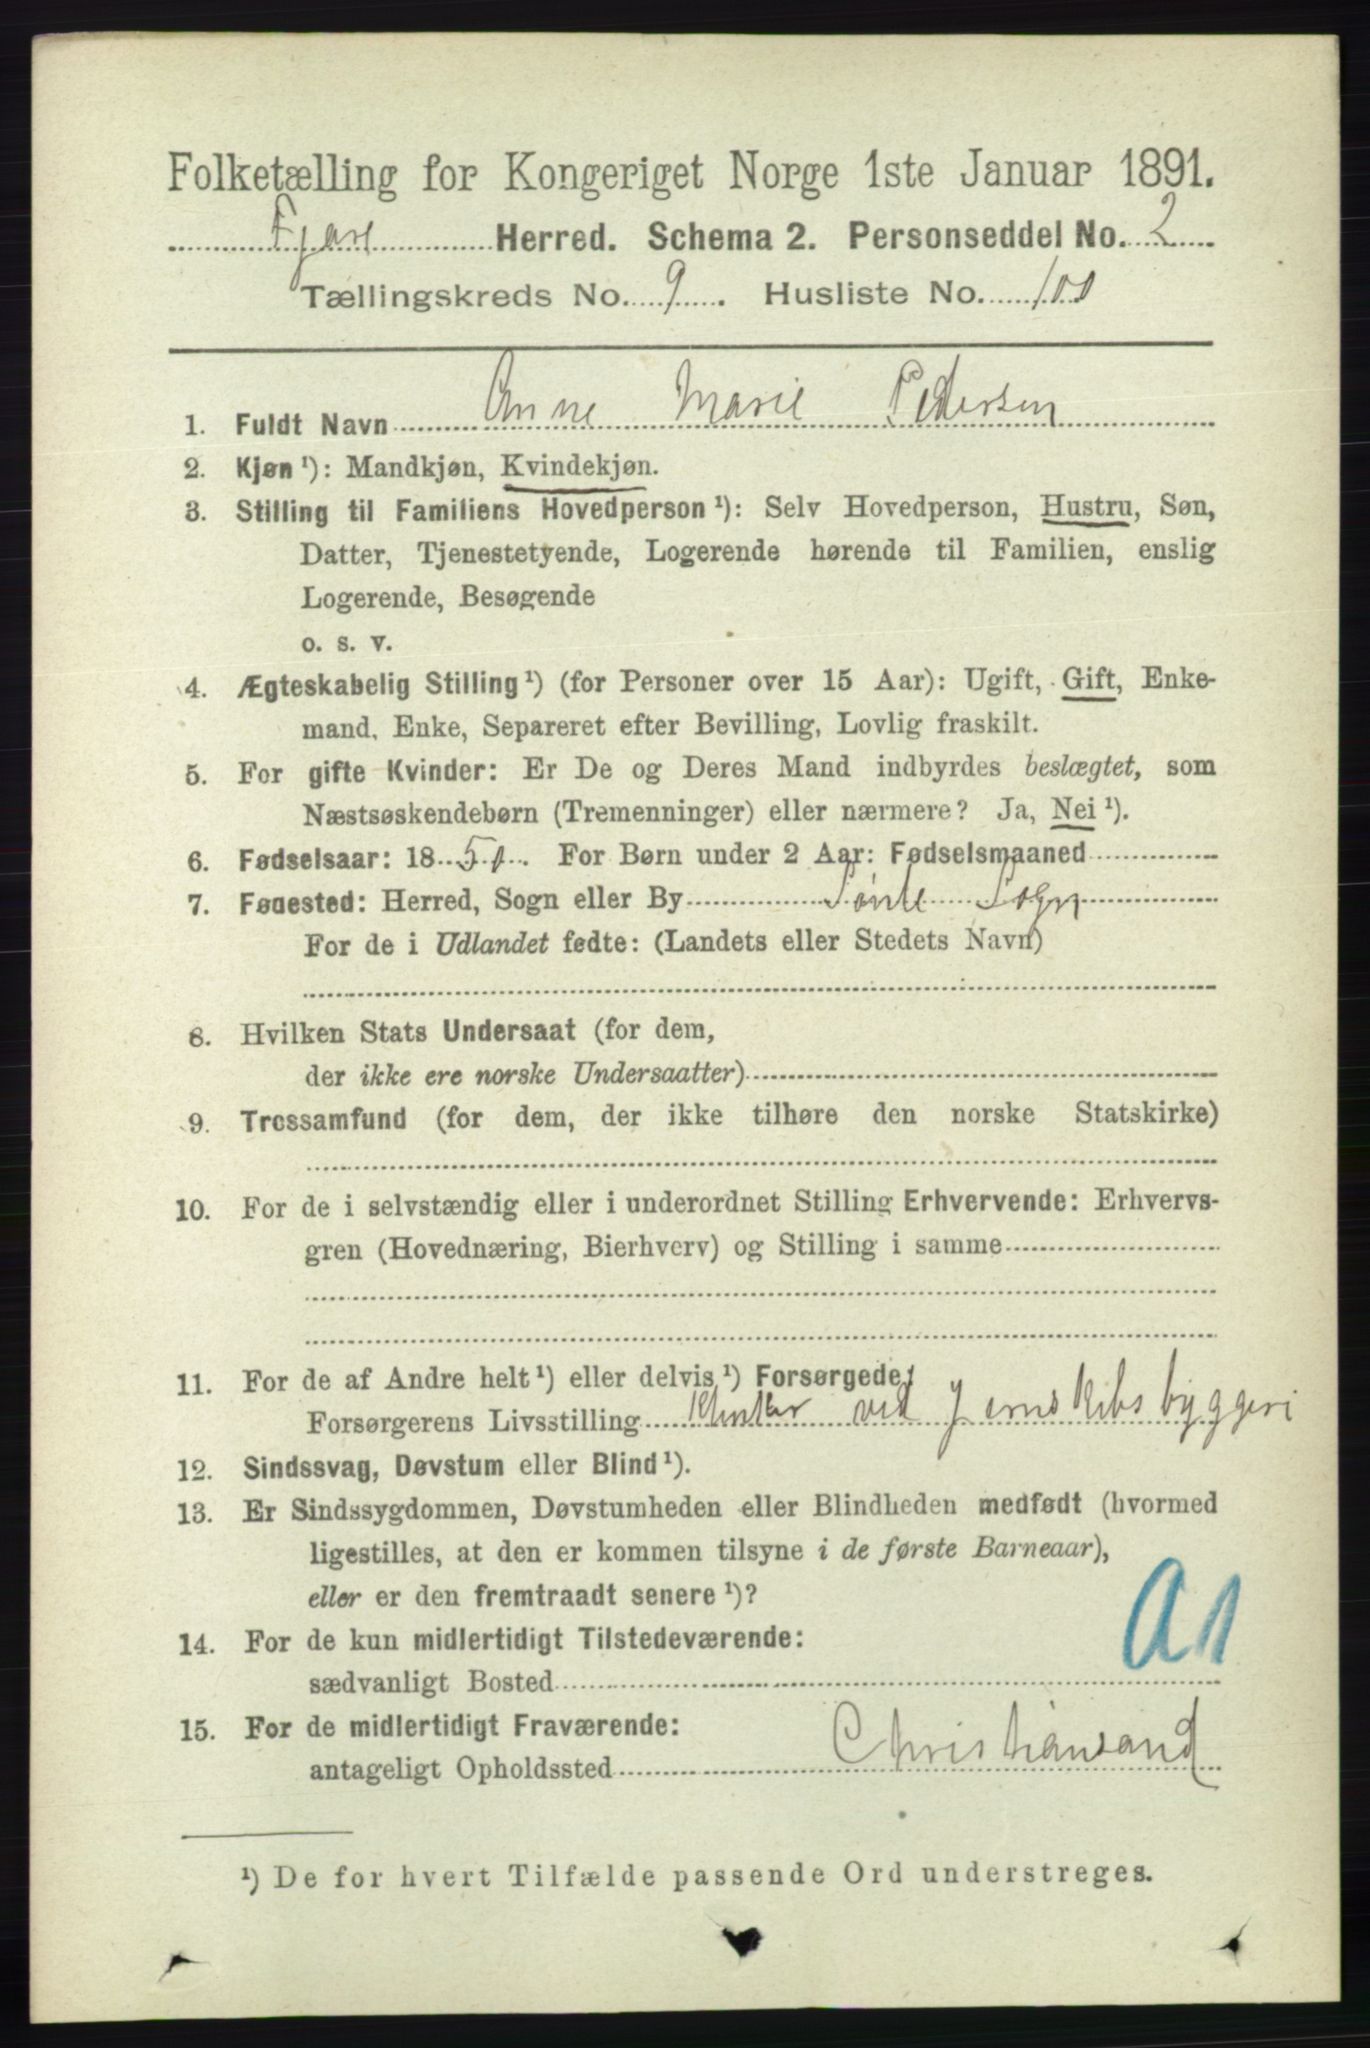 Folketælling for Kongeriget Norge 1ste Januar 1891.
Fjære Herred. Schema 2. Personseddel No. 2
Tællingskreds No. 9. Husliste No. 100
1. Fuldt Navn Anne Marie Pedersen
2. Kjøn ¹): Mandkjøn, Kvindekjøn.
3. Stilling til Familiens Hovedperson ¹): Selv Hovedperson, Hustru, Søn,
Datter, Tjenestetyende, Logerende hørende til Familien, enslig
Logerende, Besøgende
o. s. v.
4. Ægteskabelig Stilling ¹) (for Personer over 15 Aar): Ugift, Gift, Enke-
mand, Enke, Separeret efter Bevilling, Lovlig fraskilt.
5. For gifte Kvinder: Er De og Deres Mand indbyrdes beslægtet, som
Næstsøskendebørn (Tremenninger) eller nærmere? Ja, Nei ¹).
6. Fødselsaar: 18 51. For Børn under 2 Aar: Fødselsmaaned
7. Fødested: Herred, Sogn eller By Sogn
For de i Udlandet fødte: (Landets eller Stedets Navn)
8. Hvilken Stats Undersaat (for dem,
der ikke ere norske Undersaatter)
9. Trossamfund (for dem, der ikke tilhøre den norske Statskirke)
10. For de i selvstændig eller i underordnet Stilling Erhvervende: Erhvervs-
gren (Hovednæring, Bierhverv) og Stilling i samme
11. For de af Andre helt ¹) eller delvis ¹) Forsørgede:
Forsørgerens Livsstilling Klinker ved Jernskibsbyggeri
12. Sindssvag, Døvstum eller Blind ¹).
13. Er Sindssygdommen, Døvstumheden eller Blindheden medfødt (hvormed
ligestilles, at den er kommen tilsyne i de første Barneaar),
eller er den fremtraadt senere ¹)?
14. For de kun midlertidigt Tilstedeværende:
sædvanligt Bosted
A1
15. For de midlertidigt Fraværende:
antageligt Opholdssted Christiansand
¹) De for hvert Tilfælde passende Ord understreges.